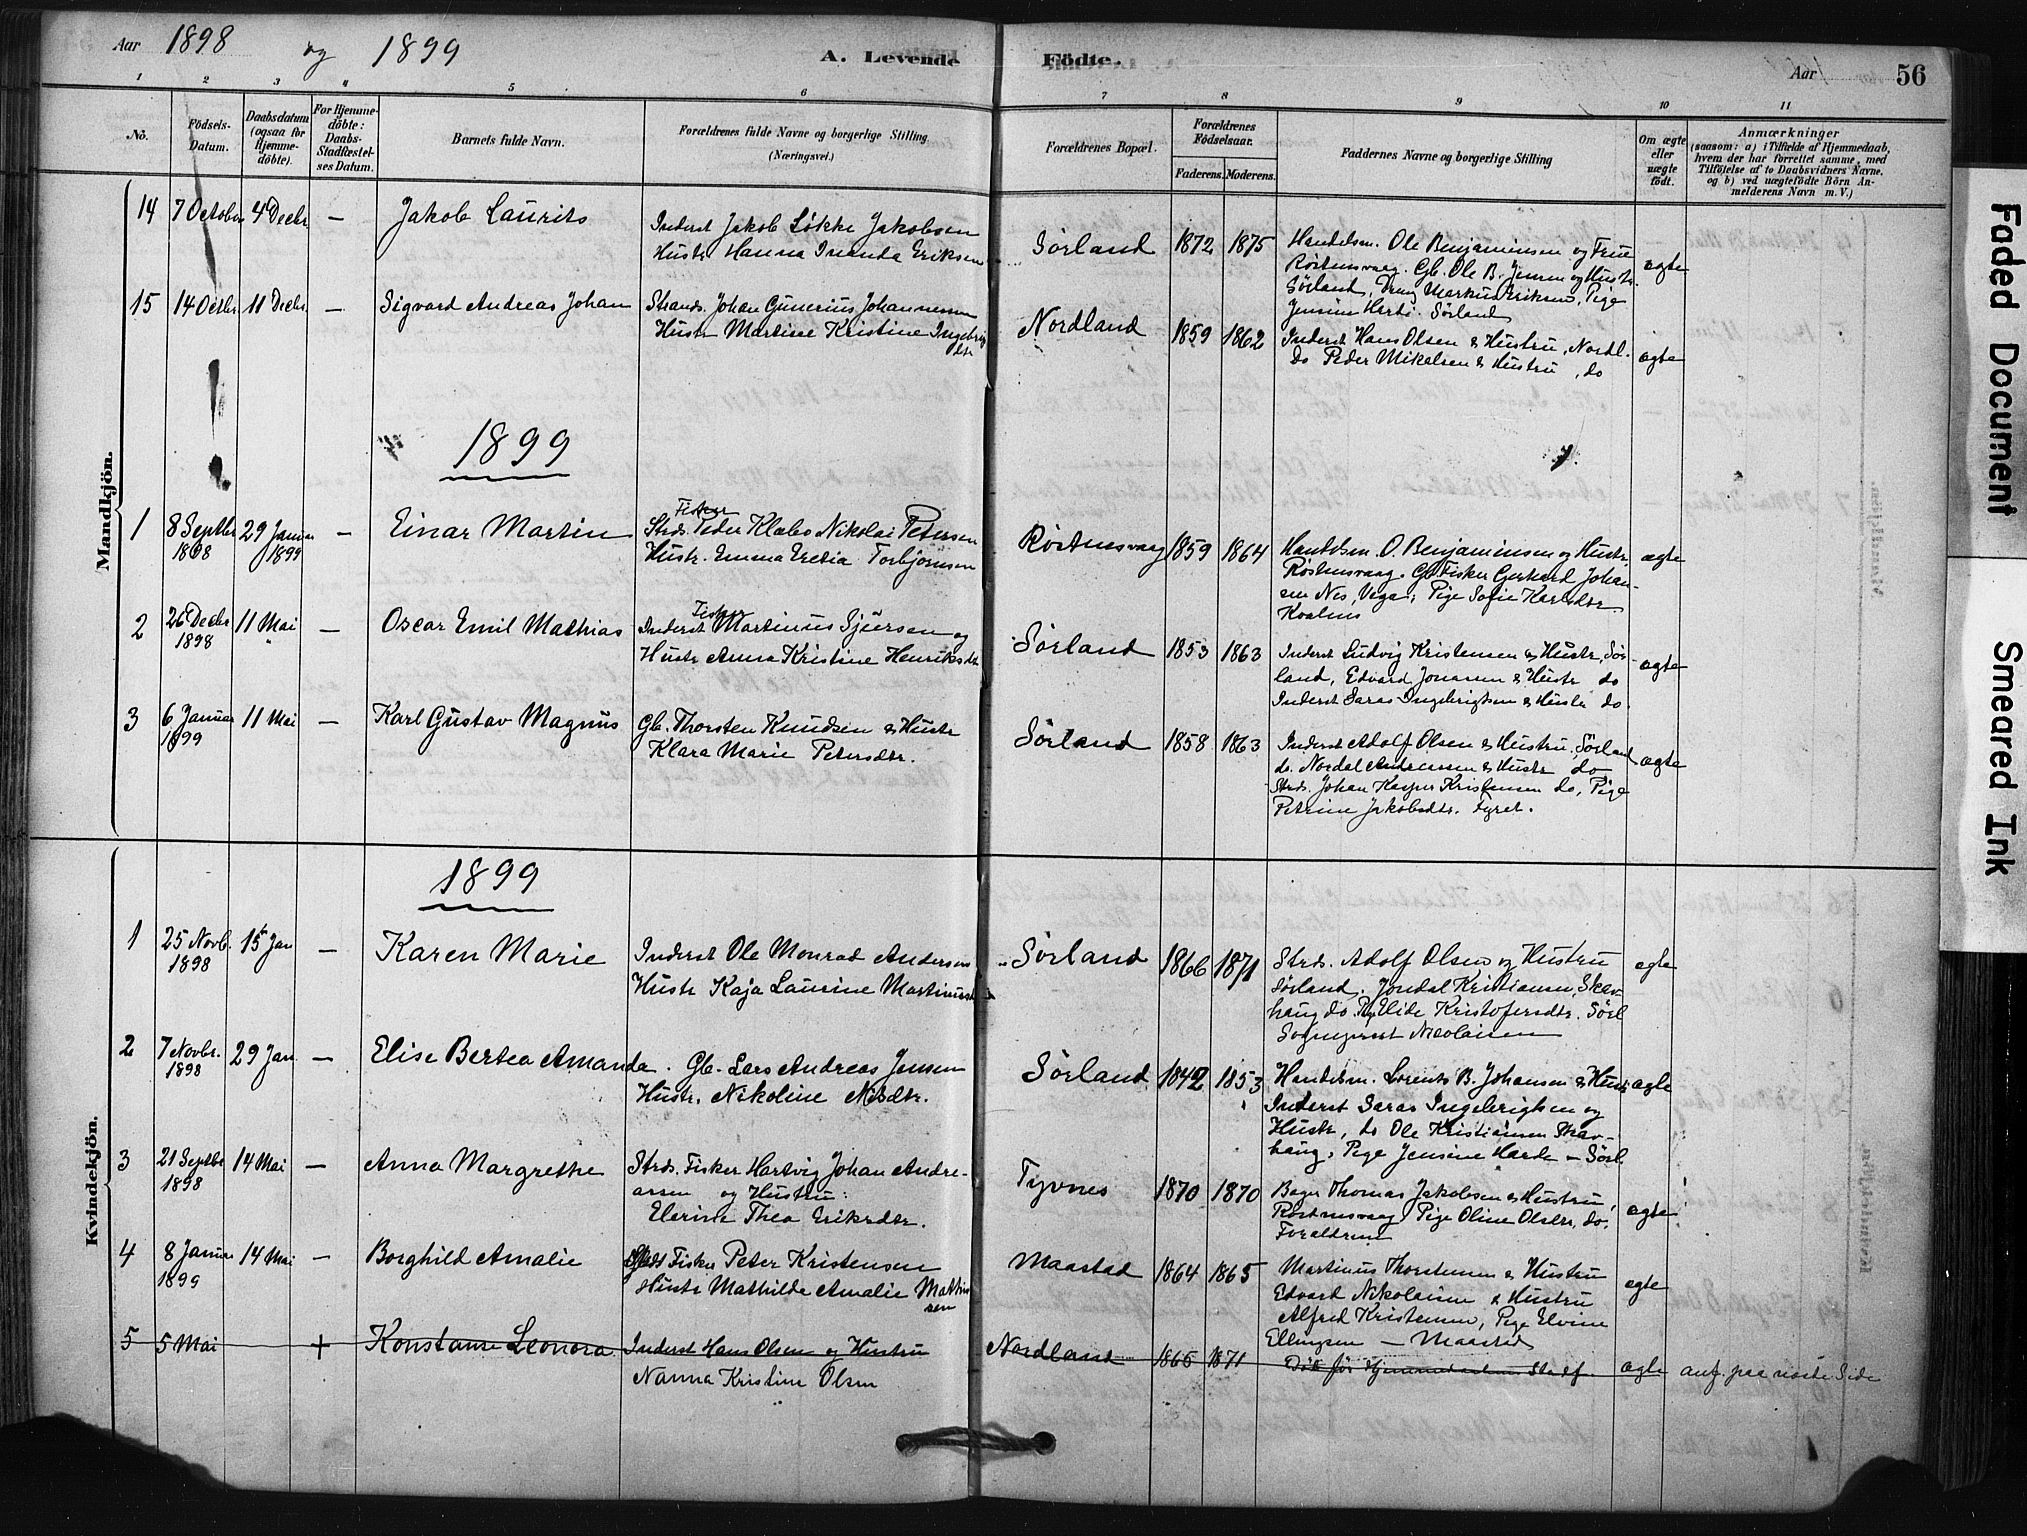 Aar 1898 og 1899 A. Levende Födte. Aar 56
1 2 3 4 5 6 7 8 9 10 11
No. Födsels-Datum. Daabsdatum (ogsaa for Hjemme-döbte). For Hjemme-döbte: Daabs-Stadfæstel-ses Datum. Barnets fulde Navn. Forældrenes fulde Navne og borgerlige Stilling (Næringsvei.) Forældrenes Bopæl. Forældrenes Födselsaar. Faderens. Moderens. Faddernes Navne og borgerlige Stilling Om ægte eller uægte födt. Anmærkninger (saasom: a) i Tilfælde af Hjemmedaab, hvem der har forrettet samme, med Tilföielse af to Daabsvidners Navne, og b) ved uægtefödte Börn An-melderens Navn m. V.)
Mandkjön.
14 7 October 4 Decbr. — Jakob Laurits
Inderst Jakob Løkke Jakobsen
Hustr Hanna Inanda Eriksen
Sørland 1872 1875
Handelsm. Ole Benjaminsen og Frue
Røstensvaag. Gb. Ole B. Jensen og Hustr.
Sørland, Dreng Markus Eriksen, Pige
Jensine Harde. Sørland
ægte
15 14 Octbr. 11 Decbr. — Sigvard Andreas Johan
Strands. Johan Gunerius Johannessen
Hustr Martine Kristine Ingebrigtdtr
Nordland 1859 1862
Inderst Hans Olsen & Hustru, Nordl.
Do Peder Mikelsen & Hustru, do
ægte
1899
1 8 Septbr 1898 29 Januar 1899 — Einar Martin
Fisker
Strds. Peder Klæbo Nikolai Petersen
Hustr. Emma Eretia Torbjørnsen
Røstensvaag 1859 1864
Handelsm. O. Benjaminsen og Hustr.
Røstensvaag. Gb. Fisker Gerhard Johan-
sen Nes, Vega, Pige Sofie Karlsdtr
ægte
2 26 Decbr 1898 11 Mai — Oscar Emil Mathias
Fisker
Inderst Martinus Sjursen og
Hustr Anna Kristine Henriksdtr
Sørland 1853 1863
Inderst Ludvig Kristensen & Hustr, Sør-
land, Edvard Jonassen & Hustr do
Inderst Saras Ingebrigtsen & Hustr do.
ægte
3 6 Januar 1899 11 Mai — Karl Gustav Magnus
Gb. Thorsten Knudsen & Hustr
Klara Marie Petersdtr.
Sørland 1858 1863
Inderst Adolf Olsen & Hustru, Sørland
do. Nordal Andreassen & Hustr do
Strds. Johan Kasper Kristensen do, Pige
Petrine Jakobsdtr. Fyret.
ægte
Kvindekjön.
1899
1 25 Novb. 1898 15 Jan — Karen Marie
Inderst Ole Monrad Andersen
Hustr Kaja Laurine Martinus
Sørland 1866 1871
Strds. Adolf Olsen og Hustru
Sørland. Jondal Kristiansen, Skav-
haug do. Pige Elide Kristofersdtr. Sørl
Sogneprest Nicolaisen
ægte
2 7 Novbr. 1898 29 Jan — Elise Bertea Amanda
Gb. Lars Andreas Jensen
Hustr. Nikoline Nilsdtr.
Sørland 1842 1853
Handelsm. Lorents B. Johansen & Hustr
Inderst Saras Ingebrigtsen og
Hustr, do Ole Kristiansen Skav-
haug, Pige Jensine Harde — Sørl.
ægte
3 21 Septbr 1898 14 Mai — Anna Margrethe
Strds. Fisker Hartvig Johan Andre-
assen og Hustru:
Elerine Thea Eriksdtr.
Tyvnes 1870 1870
Bager Thomas Jakobsen & Hustru,
Røstensvaag, Pige Oline Olsdtr, do.
Forældrene
ægte
4 8 Januar 1899 14 Mai — Borghild Amalie
Fisker Peter Kristensen
Hustr Mathilde Amalie Mathissen
Maastad 1864 1865
Martinus Thorstensen & Hustru
Edvard Nikolaisen & Hustru
Alfred Kristensen, Pige Elvine
Ellingsen — Maastad
ægte
5 5 Mai + Konstanse Leonora
Inderst Hans Olsen og Hustru
Nanna Kristine Olsen
Nordland 1865 1871
Død før Hjemmedaabens Stadf.
ægte
anf. paa næste Side
Faded Document
Smeared Ink